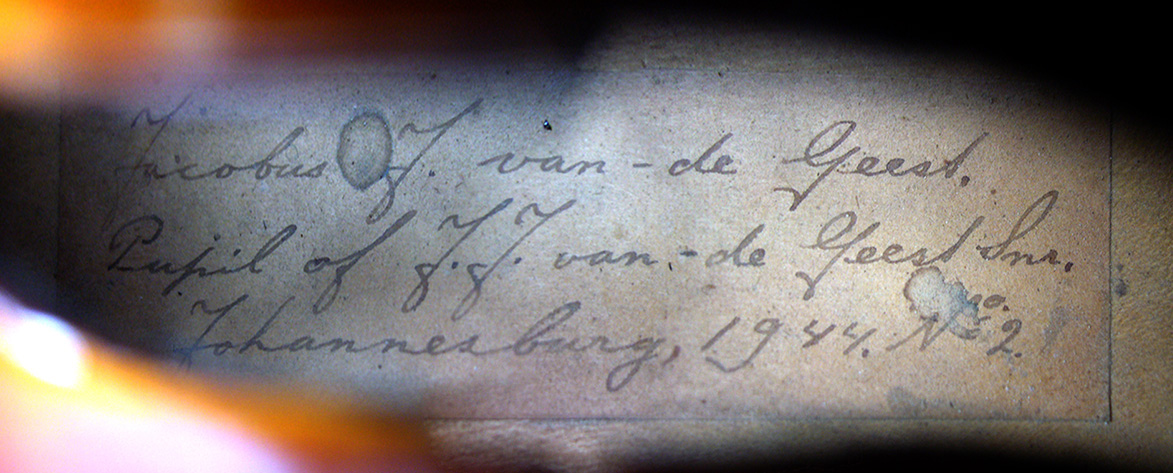 Jacobus J. van-de Geest.
Pupil of J.J. van-de Geest Snr.
Johannesburg, 1944. No. 2.